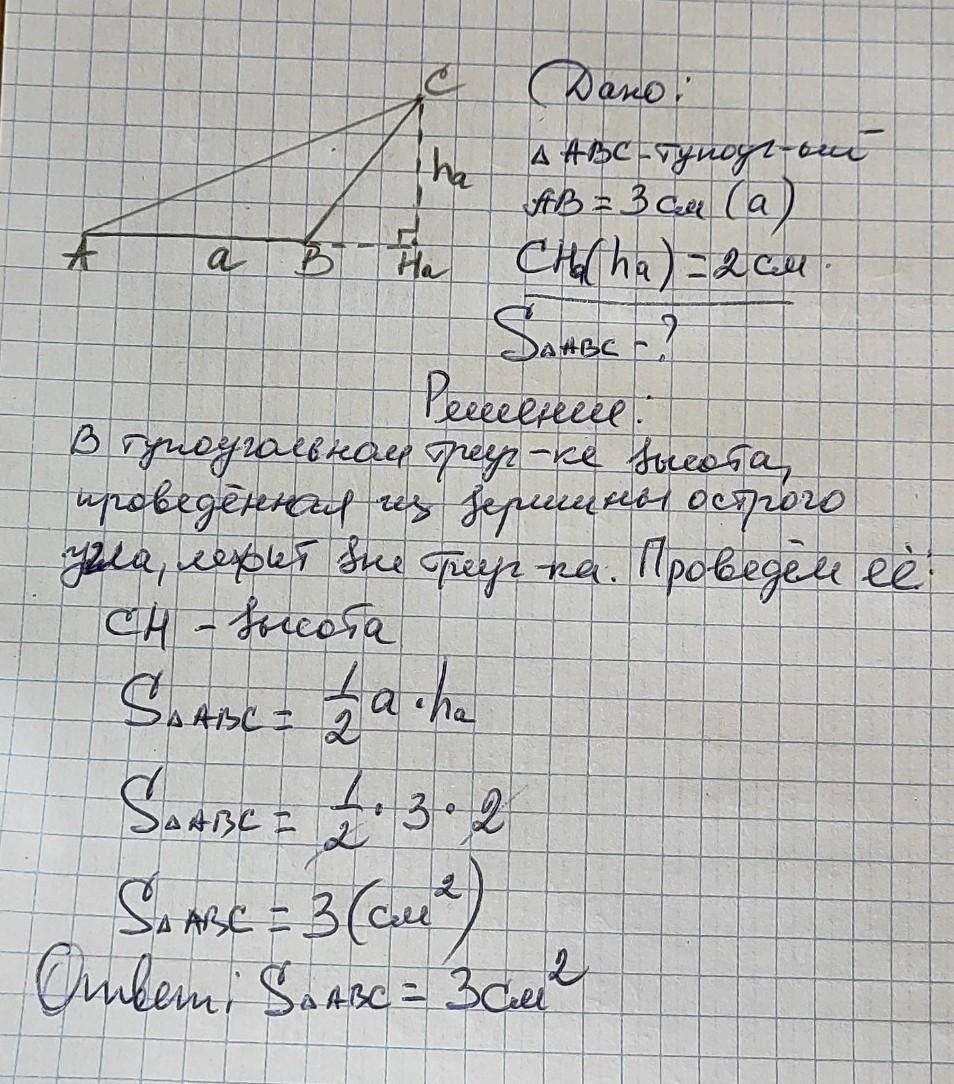 C
hₐ
A a B Hₐ
Дано:
△ABC - тупоуг-ый
AB = 3 см (a)
CHₐ(hₐ) = 2 см.
S△ABC - ?
Решение:
В тупоугольном треуг-ке высота,
проведённая из вершины острого
угла, лежит вне треуг-ка. Проведём её:
CH - высота
S△ABC = 1/2 a · hₐ
S△ABC = 1/2 · 3 · 2
S△ABC = 3 (см²)
Ответ: S△ABC = 3 см²